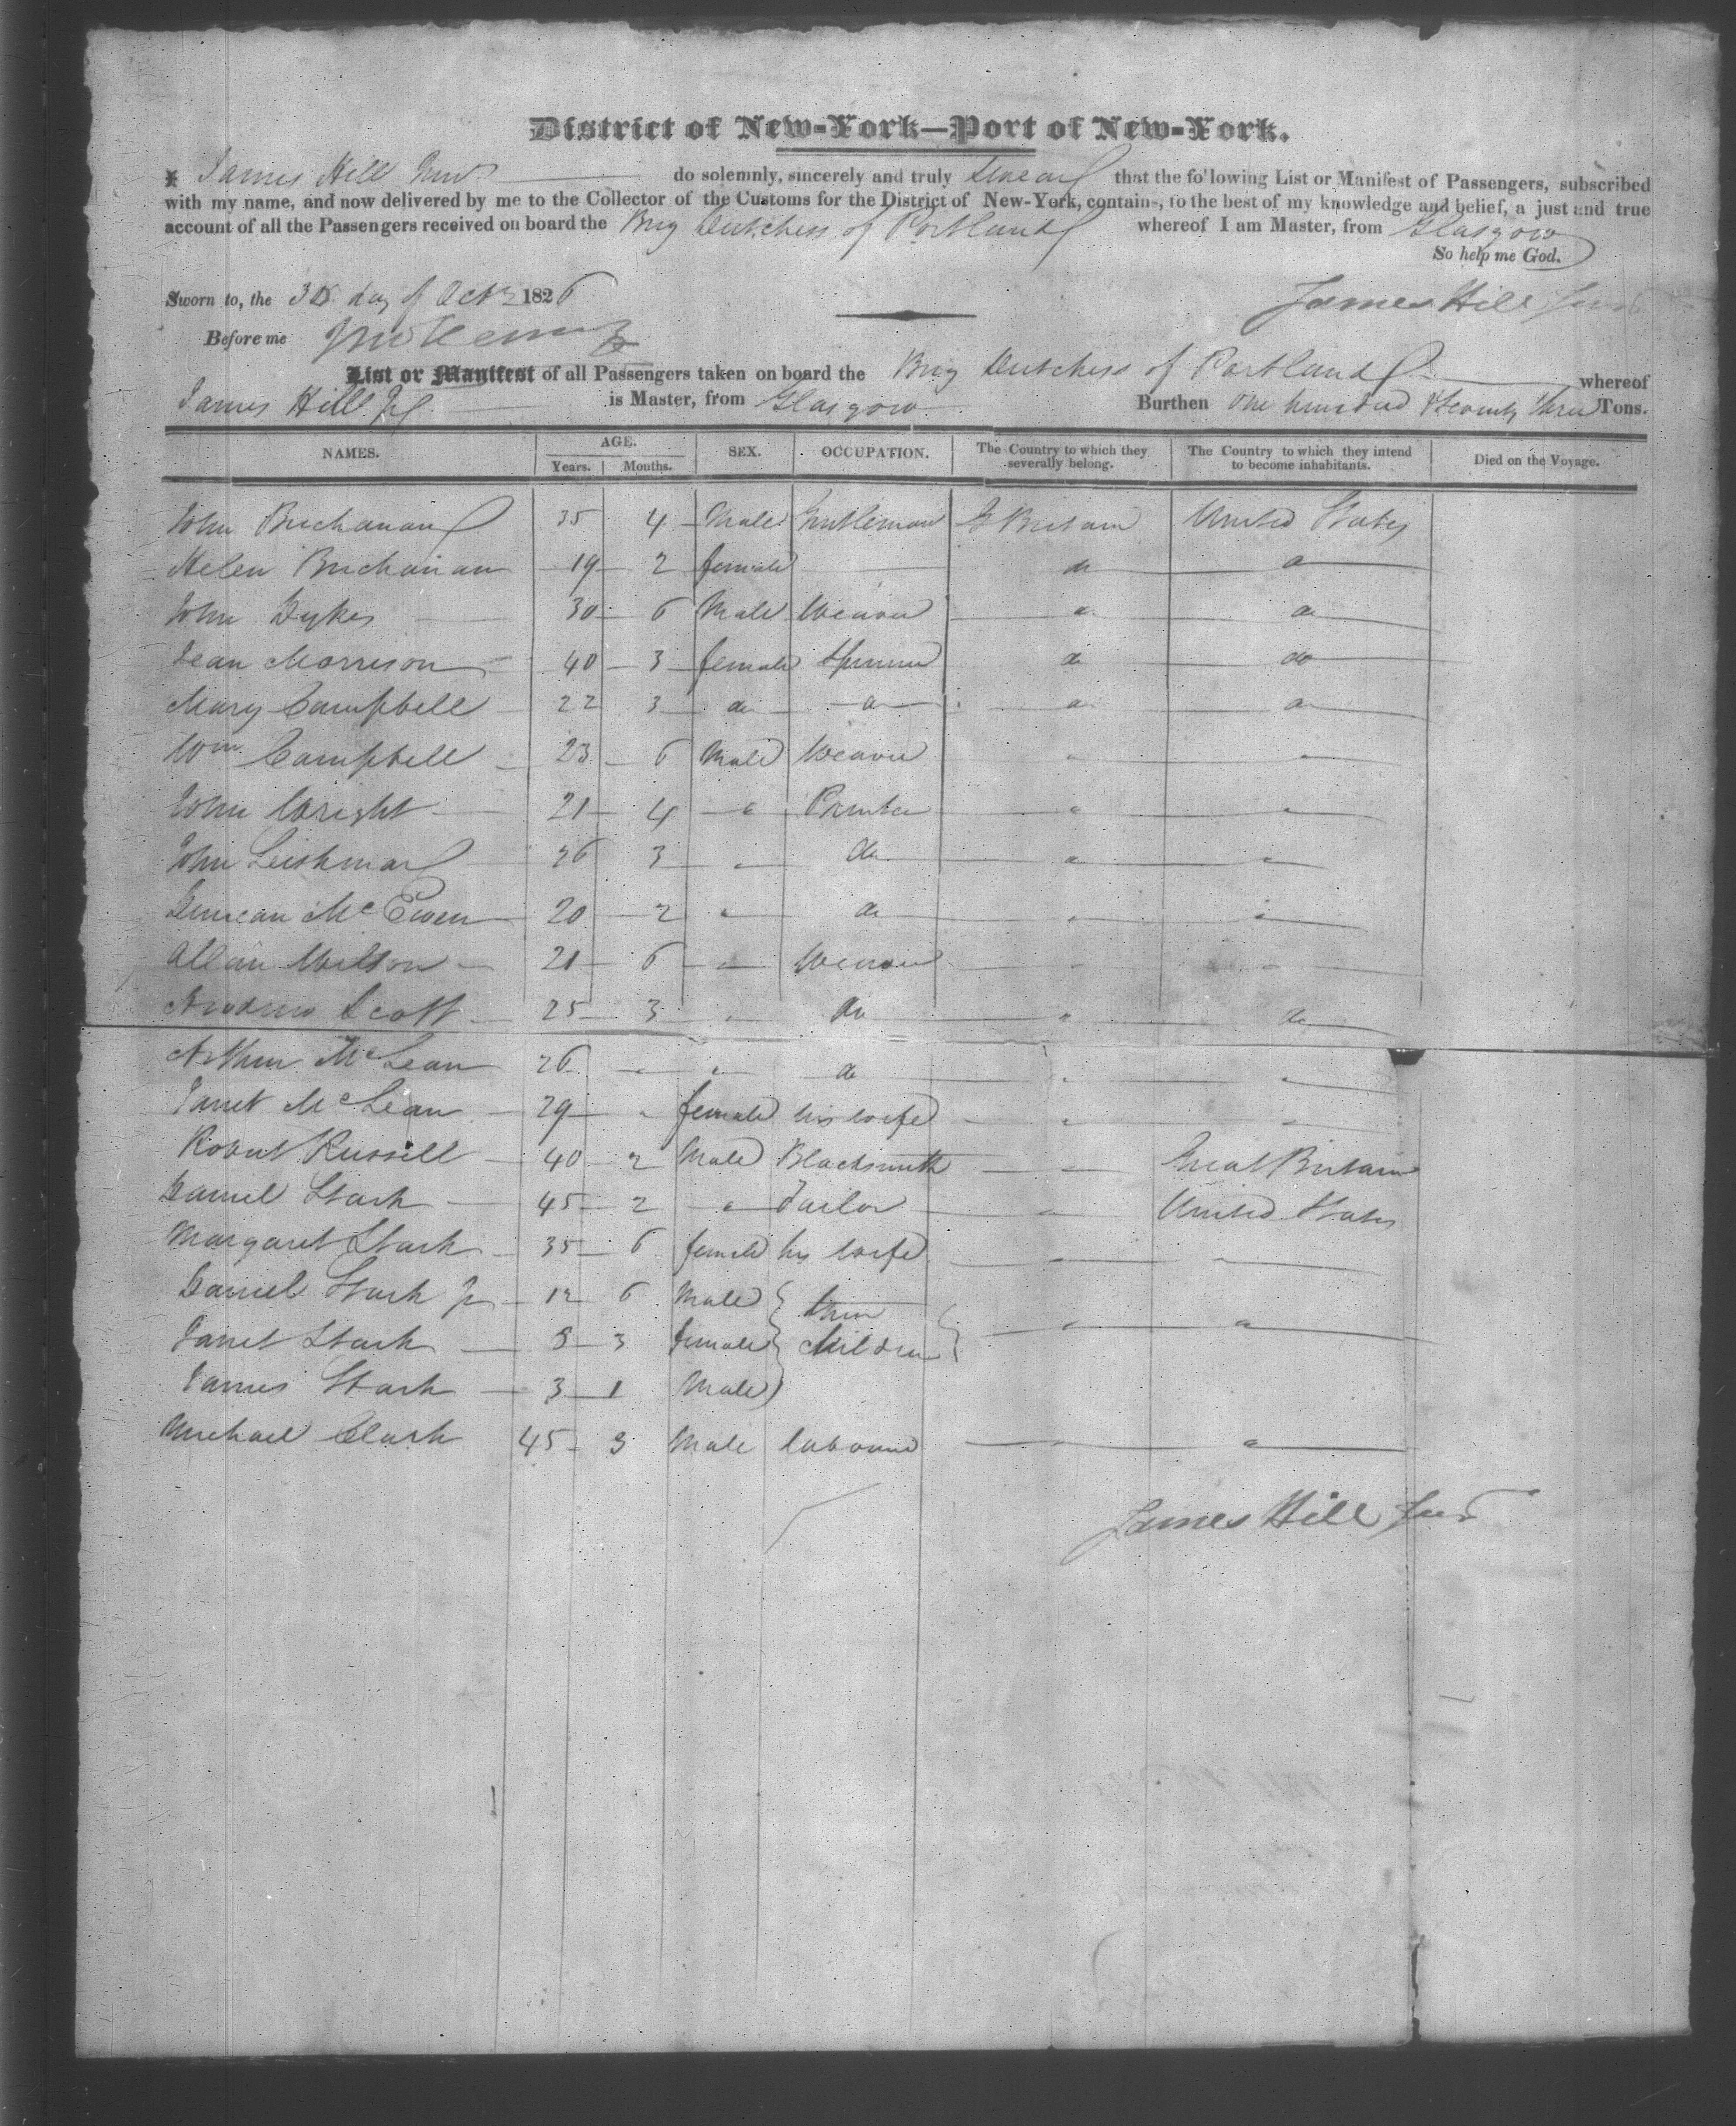 District of New-York—Port of New-York.
I James Hill Junr do solemnly, sincerely and truly Swear that the following List or Manifest of Passengers, subscribed
with my name, and now delivered by me to the Collector of the Customs for the District of New-York, contains, to the best of my knowledge and belief, a just and true
account of all the Passengers received on board the Brig Dutchess of Portland whereof I am Master, from Glasgow
So help me God.
Sworn to, the day of Octr 1826 James Hill Junr
Before me
List or Manifest of all Passengers taken on board the Brig Dutchess of Portland whereof
James Hill Jr is Master, from Glasgow Burthen One hundred & Seventy Three Tons.
NAMES. AGE. Years. Months. SEX. OCCUPATION. The Country to which they severally belong. The Country to which they intend to become inhabitants. Died on the Voyage.
John Buchanan 35 4 Male Gentleman G Britain United States
Helen Buchanan 19 2 female do do
John Dykes 30 6 Male Weaver do do
Jean Morrison 40 3 female Spinner do do
Mary Campbell 22 3 do do do do
Wm Campbell 23 6 Male Weaver " "
John Wright 21 4 " Printer " "
John Leishman 26 3 " do " "
Duncan McEwen 20 2 " do " "
Allan Wilson 21 6 " Weaver " "
Andrew Scott 25 3 " do " do
Arthur McLean 26 " " do " "
Janet McLean 29 " female his wife " "
Robert Russell 40 2 Male Blacksmith " Great Britain
Daniel Stark 45 2 " Tailor " United States
Margaret Stark 35 6 female his wife " "
Daniel Stark Jr 12 6 Male their
Janet Stark 8 3 female children " "
James Stark 3 1 Male
Michael Clark 45 3 Male labourer " "
James Hill Junr